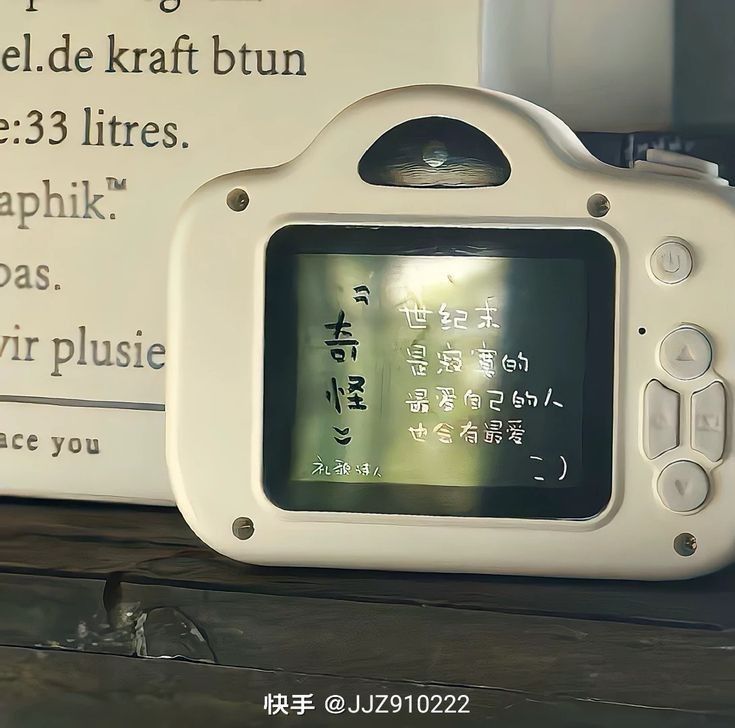 el.de kraft btun
e:33 litres.
aphik.™
pas.
vir plusie
ace you
『奇怪』
世纪末
是寂寞的
最爱自己的人
也会有最爱
:)
快手 @JJZ910222